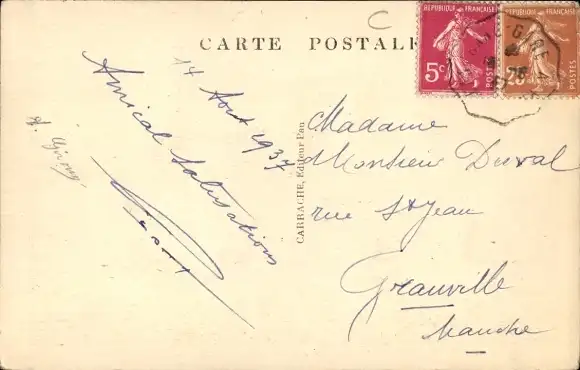 C
CARTE POSTALE
RÉPUBLIQUE FRANÇAISE
5c
POSTES
RÉPUBLIQUE FRANÇAISE
POSTES
14 Août 1937
Amical Salutations
CARRACHE, Éditeur Pau
Madame
Monsieur Duval
rue St Jean
Granville
Manche